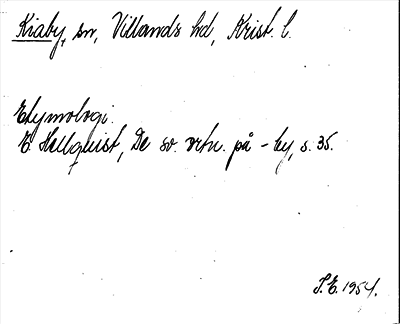 Kiaby, sn, Villands hd, Krist. l.
Etymologi:
E. Hellquist, De sv. ortn. på -by, s. 35.
S.E. 1954.